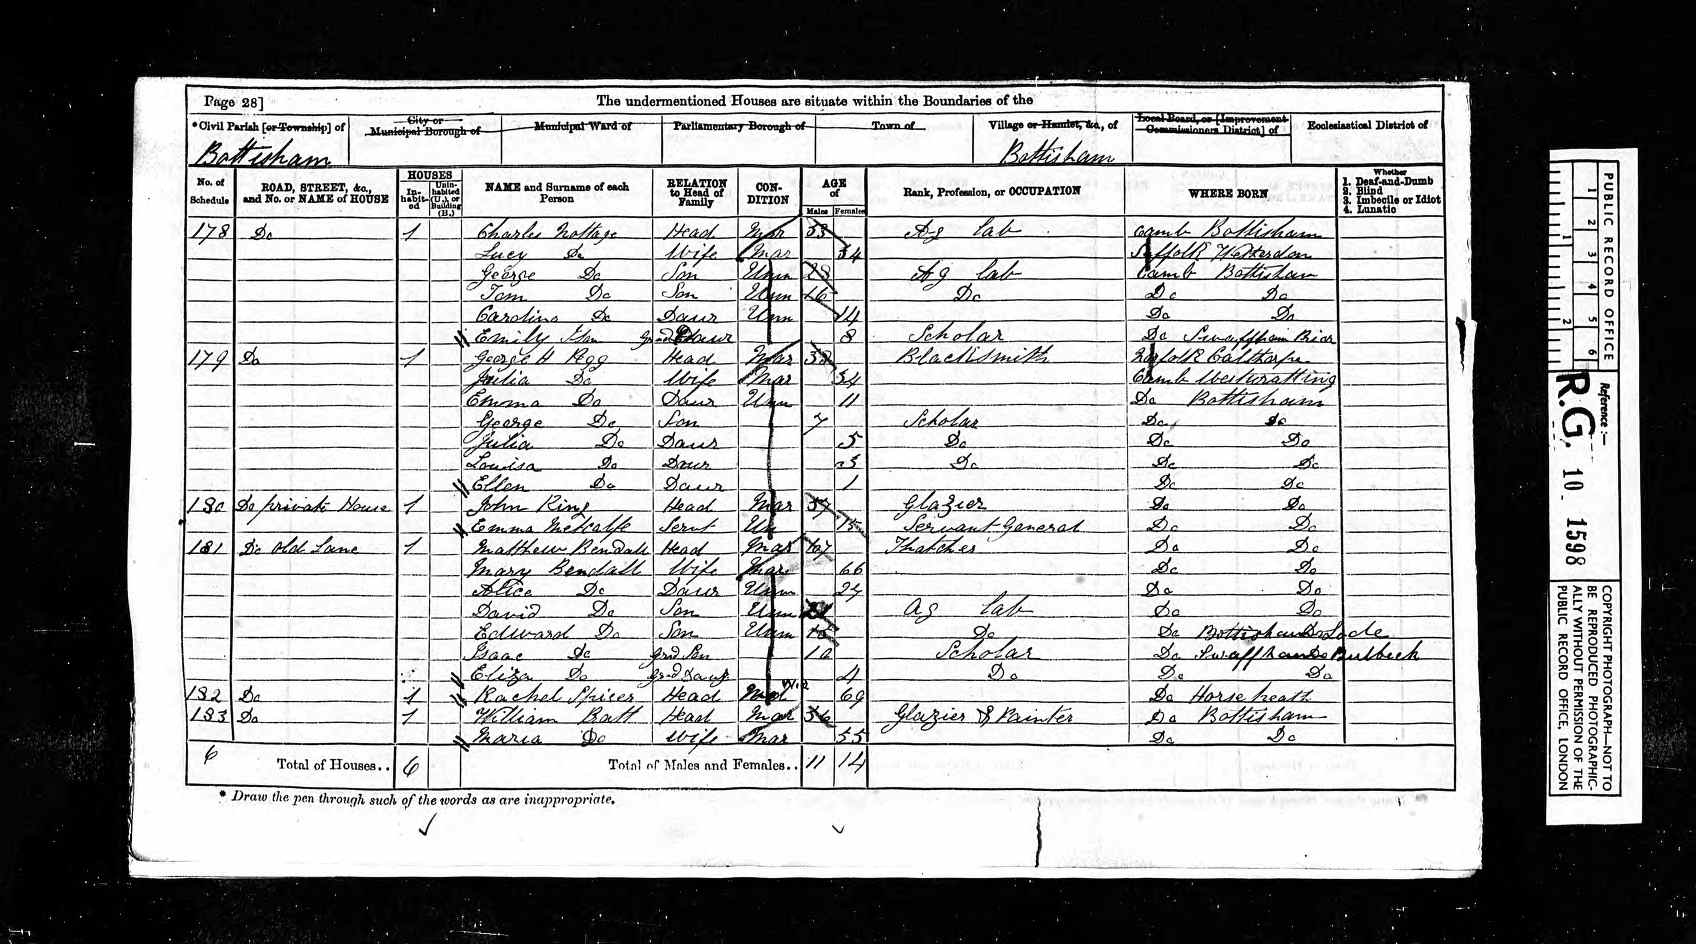 Page 28]
The undermentioned Houses are situate within the Boundaries of the
*Civil Parish [or Township] of
City or Municipal Borough of
Municipal Ward of
Parliamentary Borough of
Town of
Village or Hamlet, &c., of
Local Board, or [Improvement Commissioners District] of
Ecclesiastical District of
Bottisham
Bottisham
No. of Schedule
ROAD, STREET, &c., and No. or NAME of HOUSE
HOUSES
In-habit-ed
Unin-habited (U.), or Building (B.)
NAME and Surname of each Person
RELATION to Head of Family
CON-DITION
AGE of
Males
Females
Rank, Profession, or OCCUPATION
WHERE BORN
Whether
1. Deaf-and-Dumb
2. Blind
3. Imbecile or Idiot
4. Lunatic
178 Do 1 Charles Nottage Head Mar 53 Ag lab Camb Bottisham
Lucy Do Wife Mar 54 Suffolk
George Do Son Unm 23 Ag lab Camb Bottisham
Tom Do Son Unm 16 Do Do Do
Caroline Do Daur Unm 14 Do Do
Emily Grand Daur 8 Scholar Do Swaffham Prior
179 Do 1 George H Pegg Head Mar 38 Blacksmith Norfolk Calthorpe
Julia Do Wife Mar 34 Camb Westwratting
Emma Do Daur Unm 11 Do Bottisham
George Do Son 7 Scholar Do Do
Julia Do Daur 5 Do Do Do
Louisa Do Daur 3 Do Do Do
Ellen Do Daur 1 Do Do
180 Do private House 1 John King Head Mar 57 Glazier Do Do
Emma Metcalfe Servt Un 15 Servant General Do Do
181 Do old Lane 1 Matthew Bendall Head Mar 67 Thatcher Do Do
Mary Bendall Wife Mar 66 Do Do
Alice Do Daur Unm 24 Do Do
David Do Son Unm 21 Ag lab Do Do
Edward Do Son Unm Do Do Bottisham Lode
Isaac Do Grd Son 10 Scholar Do Swaffham Bulbeck
Eliza Do Grd Daur 4 Do Do Do
182 Do 1 Rachel Spicer Head Wid 69 Do Horseheath
183 Do 1 William Batt Head Mar 56 Glazier & Painter Do Bottisham
Maria Do Wife Mar 55 Do Do
6 Total of Houses.. 6 Total of Males and Females.. 11 14
* Draw the pen through such of the words as are inappropriate.
PUBLIC RECORD OFFICE
1 2 3 4 5 6
1 2
Reference :—
R.G. 10 1598
COPYRIGHT PHOTOGRAPH—NOT TO
BE REPRODUCED PHOTOGRAPHIC-
ALLY WITHOUT PERMISSION OF THE
PUBLIC RECORD OFFICE, LONDON